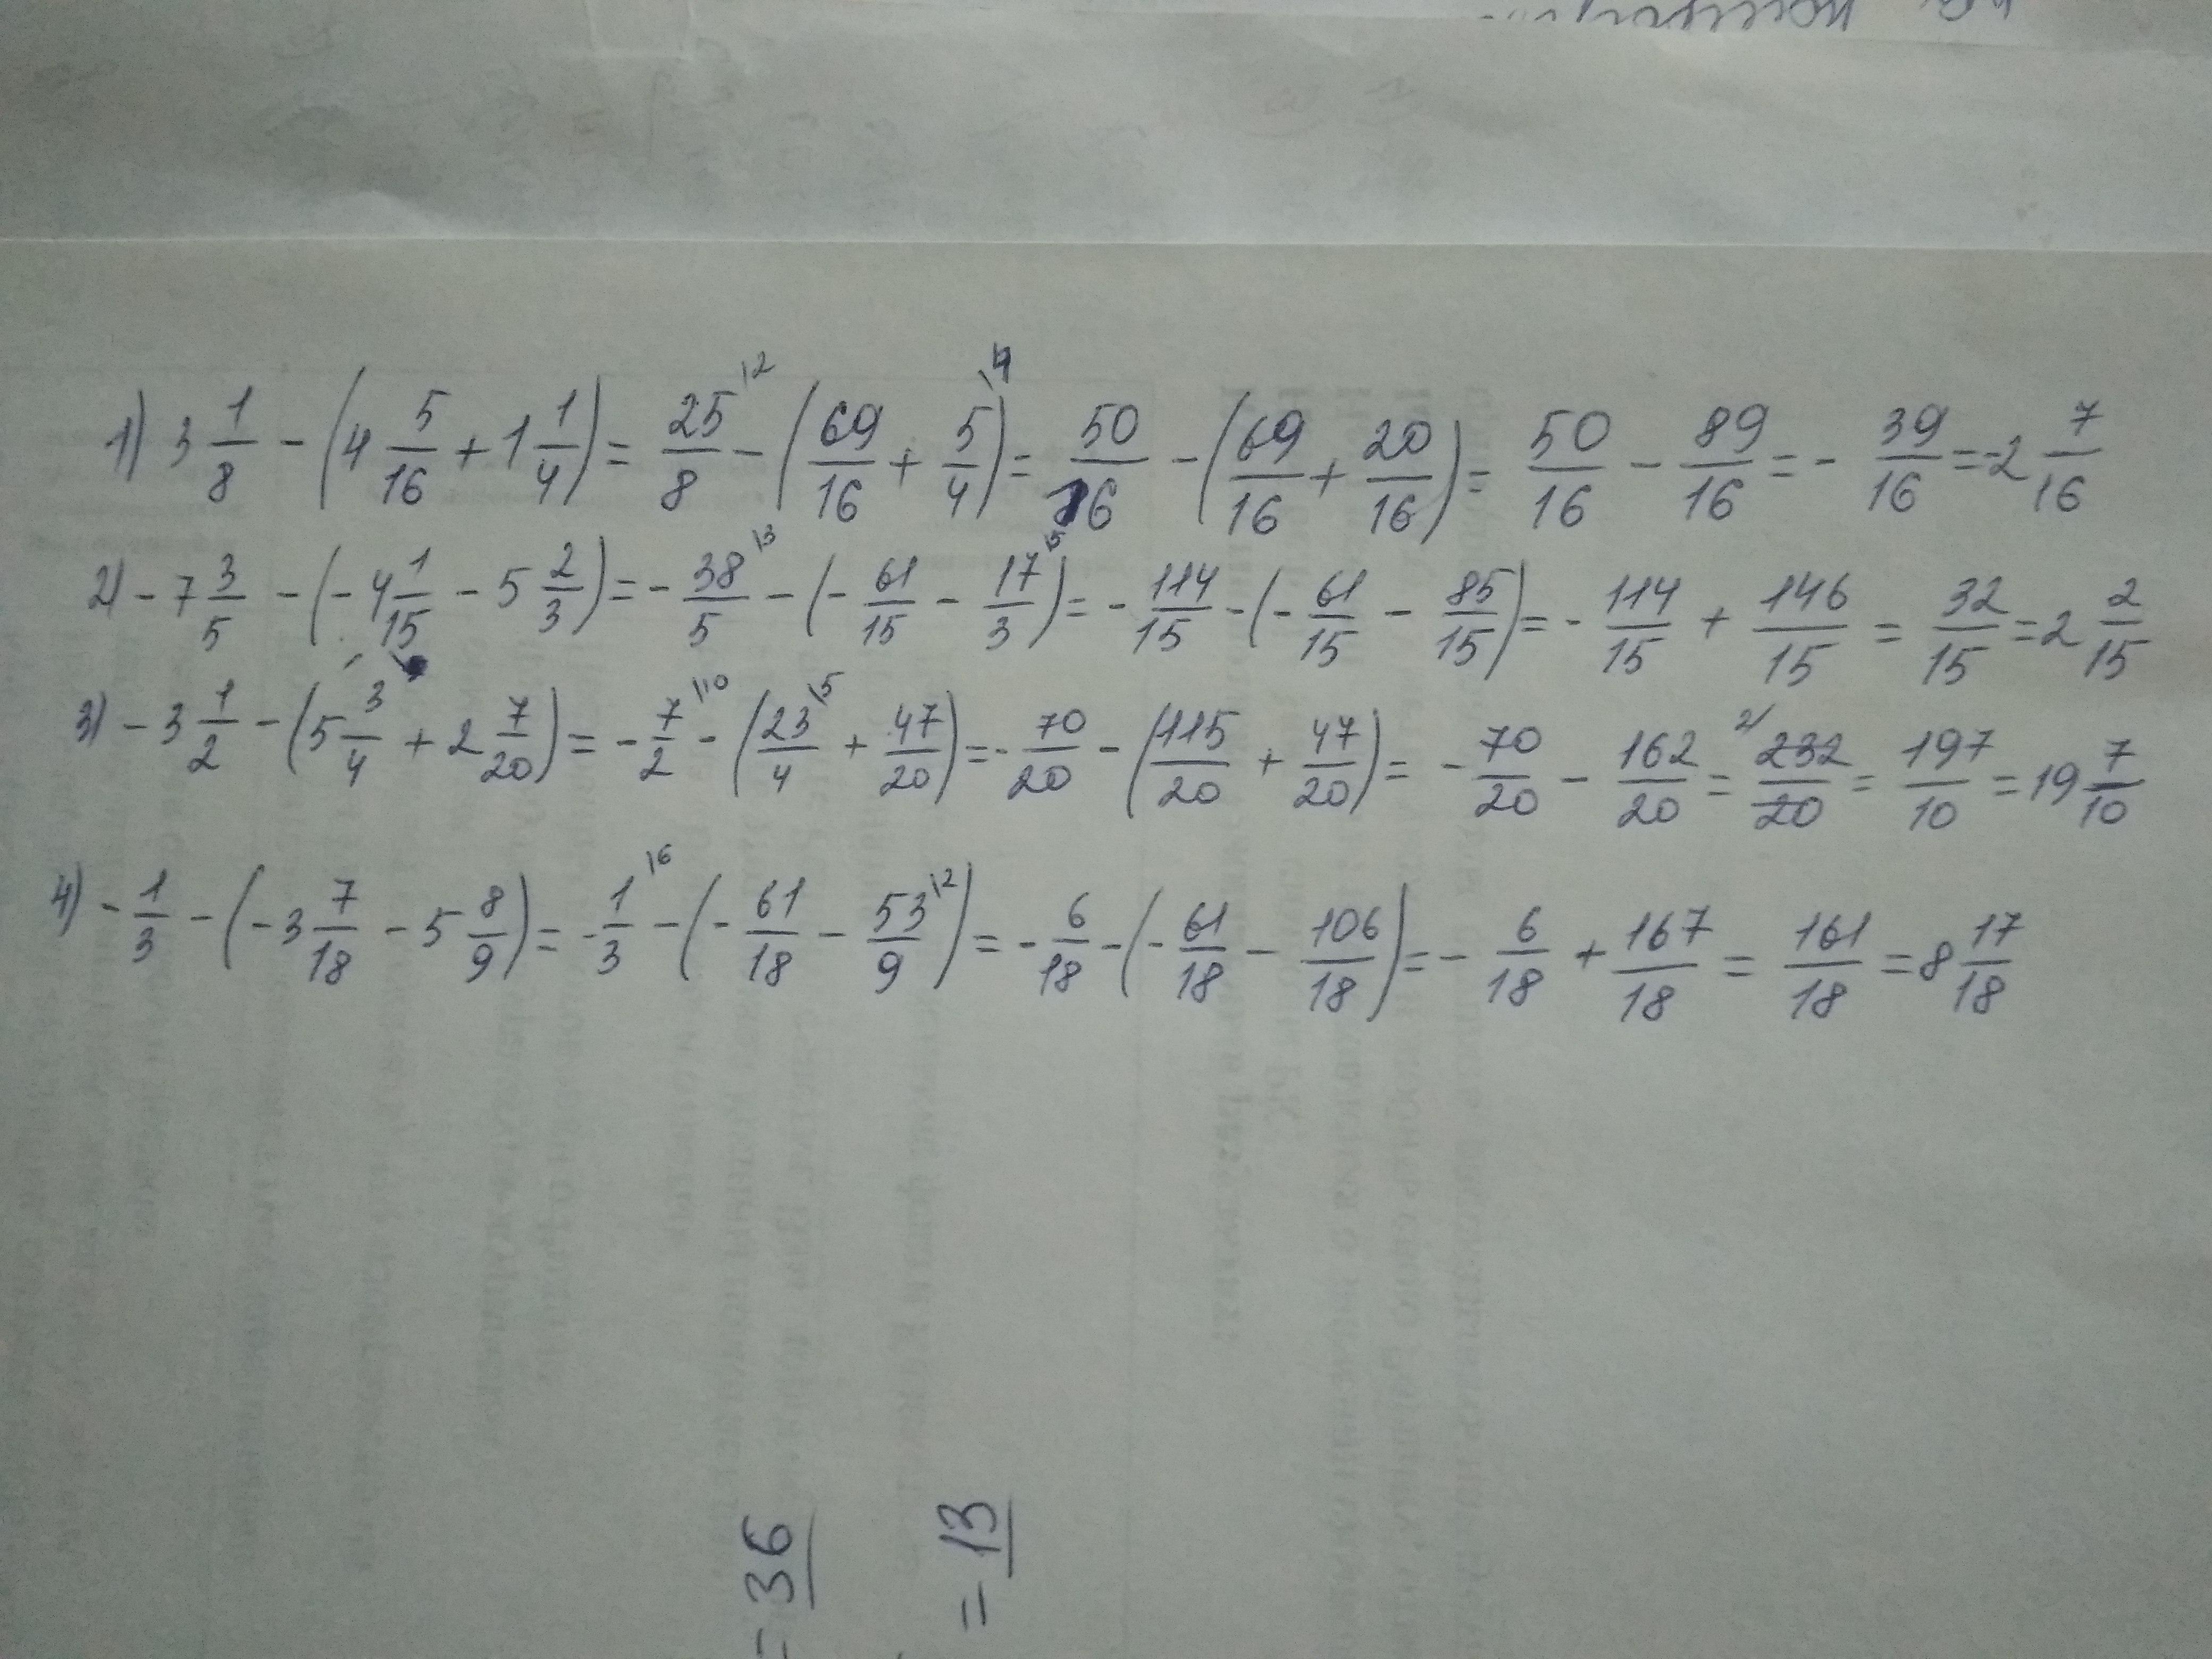 1) 3 1/8 - (4 5/16 + 1 1/4) = 25/8 \2 - (69/16 + 5/4 \4) = 50/16 - (69/16 + 20/16) = 50/16 - 89/16 = - 39/16 = -2 7/16
2) - 7 3/5 - (- 4 1/15 - 5 2/3) = - 38/5 \3 - (- 61/15 - 17/3 \5) = - 114/15 - (- 61/15 - 85/15) = - 114/15 + 146/15 = 32/15 = 2 2/15
3) - 3 1/2 - (5 3/4 + 2 7/20) = - 7/2 \10 - (23/4 \5 + 47/20) = - 70/20 - (115/20 + 47/20) = - 70/20 - 162/20 = 2/ 232/20 = 197/10 = 19 7/10
4) - 1/3 - (- 3 7/18 - 5 8/9) = - 1/3 \6 - (- 61/18 - 53/9 \2) = - 6/18 - (- 61/18 - 106/18) = - 6/18 + 167/18 = 161/18 = 8 17/18
= 36
= 13